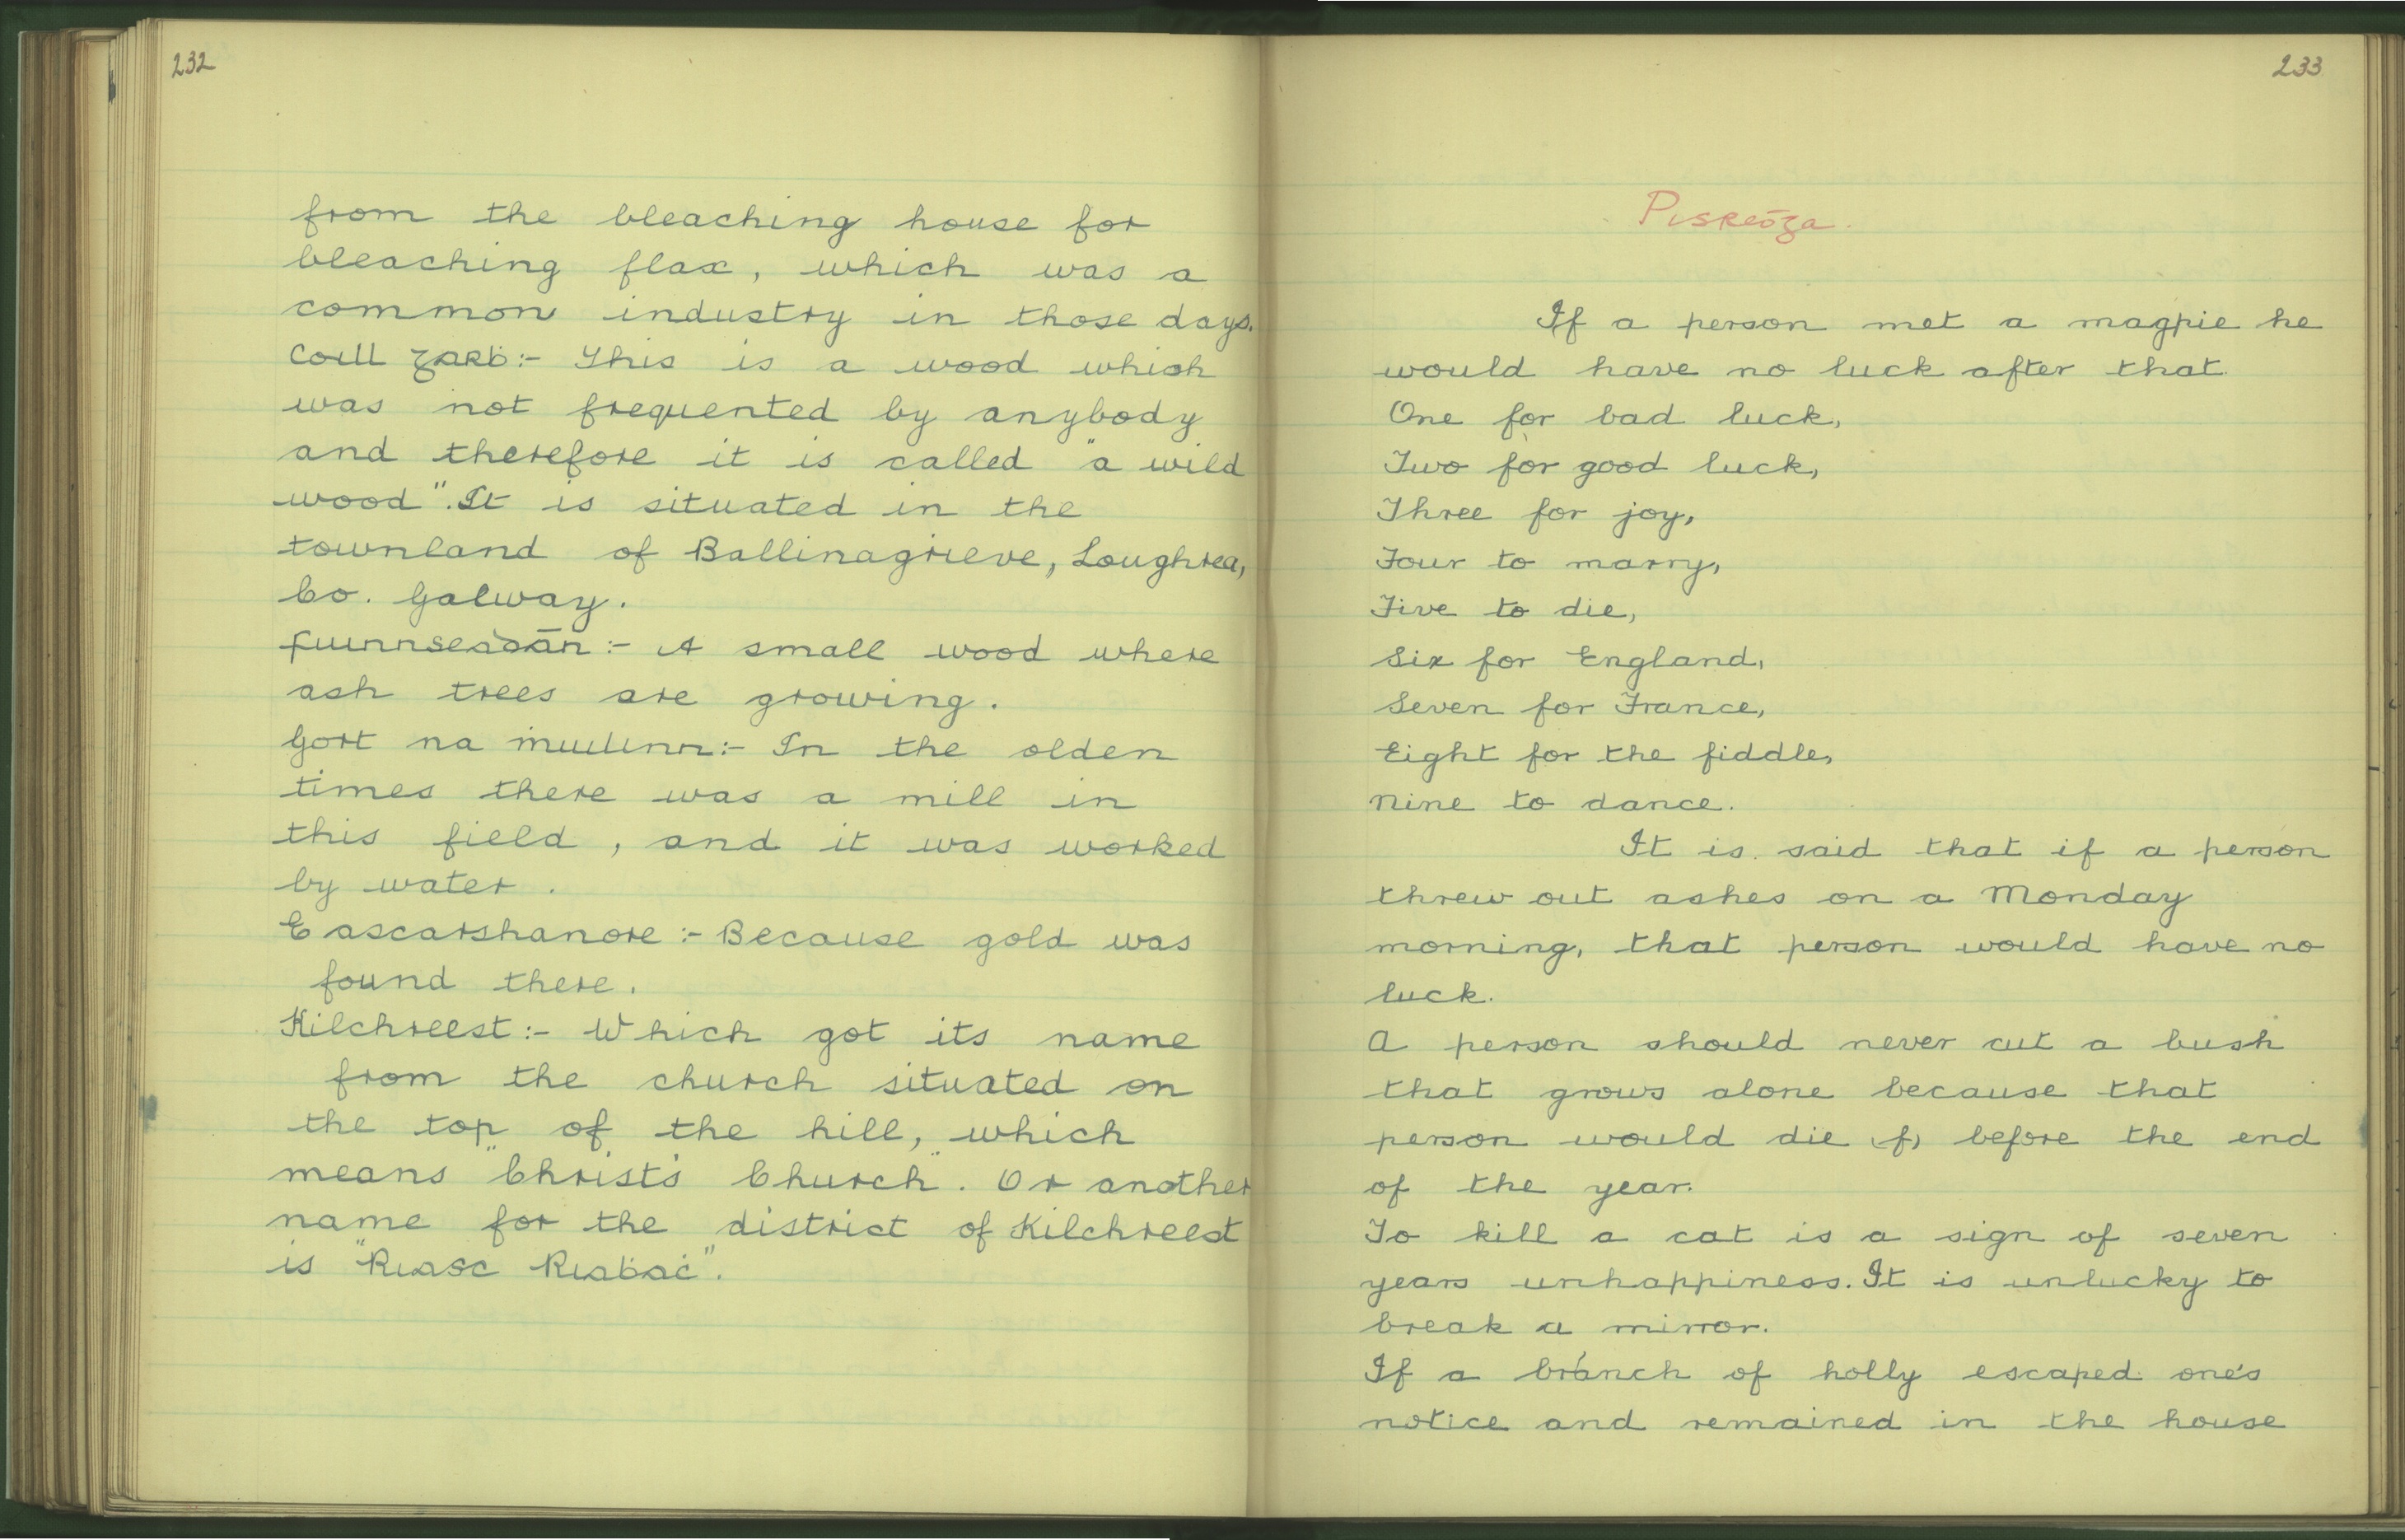 232
from the bleaching house for
bleaching flax, which was a
common industry in those days.
Coill garḃ:- This is a wood which
was not frequented by anybody
and therefore it is called "a wild
wood". It is situated in the
townland of Ballinagrieve, Loughrea,
Co. Galway.
Fuinnseaḋán:- A small wood where
ash trees are growing.
Gort na ṁuilinn:- In the olden
times there was a mill in
this field, and it was worked
by water.
Eascarshanore:- Because gold was
found there.
Kilchreest:- Which got its name
from the church situated on
the top of the hill, which
means "Christ's Church". Or another
name for the district of Kilchreest
is "Riasc Riaḃaċ".
233
Pisreóga.
If a person met a magpie he
would have no luck after that.
One for bad luck,
Two for good luck,
Three for joy,
Four to marry,
Five to die,
Six for England,
Seven for France,
Eight for the fiddle,
Nine to dance.
It is said that if a person
threw out ashes on a Monday
morning, that person would have no
luck.
A person should never cut a bush
that grows alone because that
person would die (f) before the end
of the year.
To kill a cat is a sign of seven
years unhappiness. It is unlucky to
break a mirror.
If a branch of holly escaped one's
notice and remained in the house